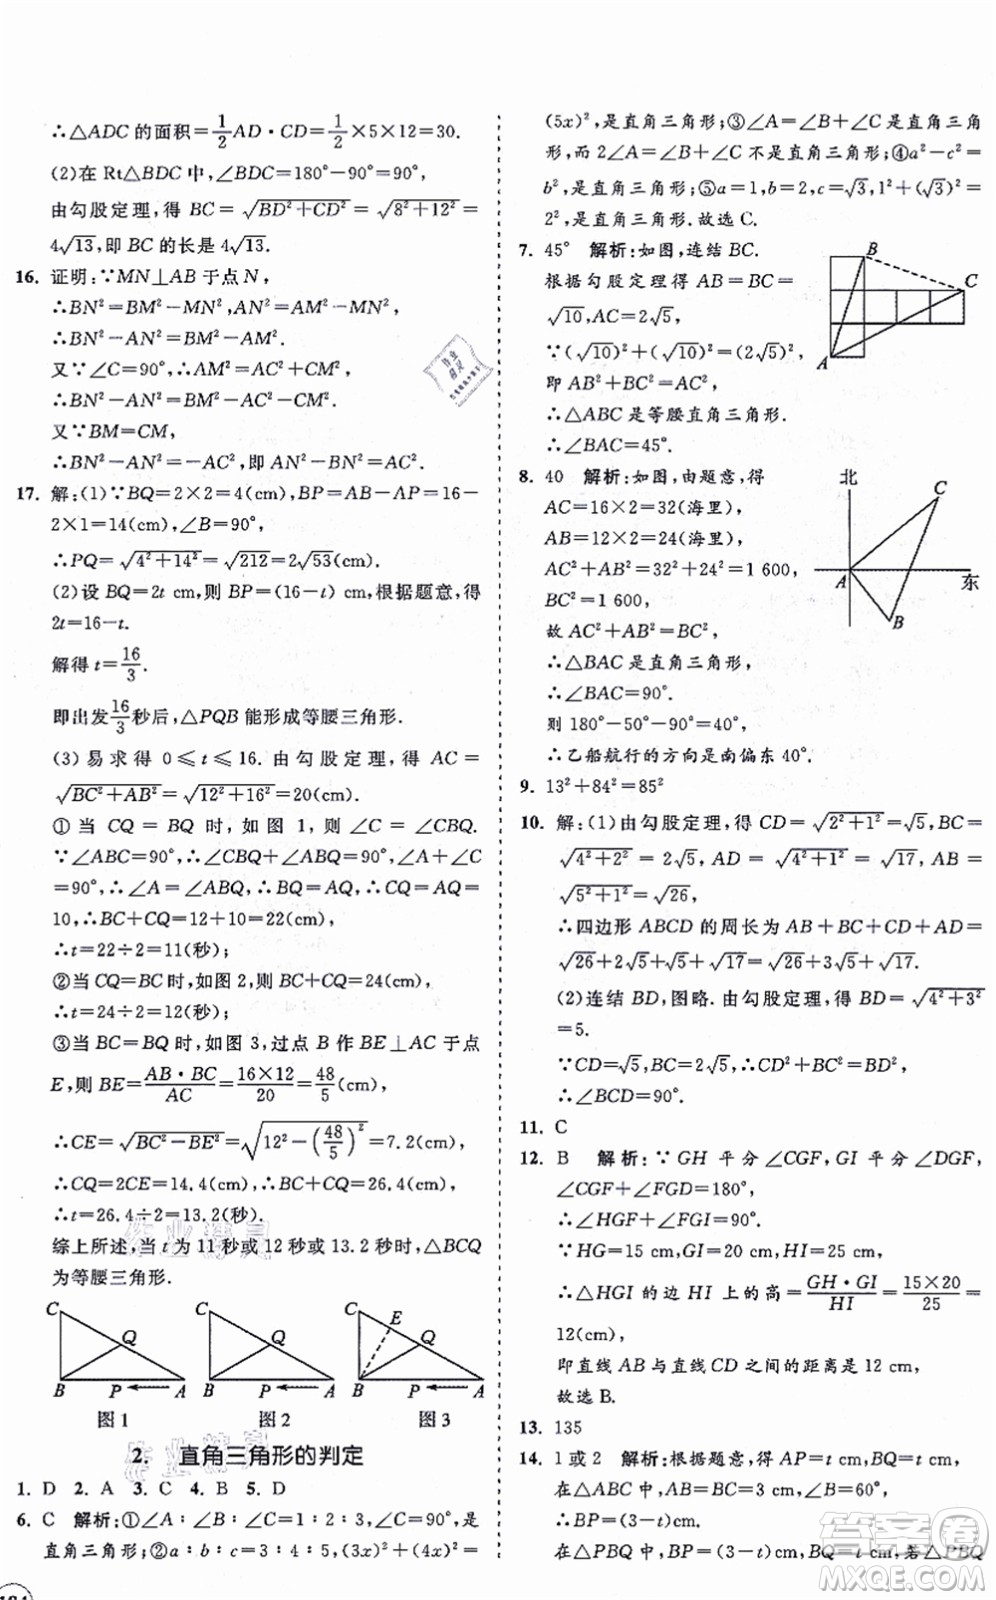 ∴△ADC 的面积=1/2 AD·CD=1/2×5×12=30.
(2)在 Rt△BDC 中,∠BDC=180°-90°=90°,
由勾股定理,得 BC=√(BD²+CD²)=√(8²+12²)=
4√13,即 BC 的长是 4√13.
16. 证明:∵MN⊥AB 于点 N,
∴BN²=BM²-MN²,AN²=AM²-MN².
∴BN²-AN²=BM²-AM².
又∵∠C=90°,∴AM²=AC²+CM².
∴BN²-AN²=BM²-AC²-CM².
又∵BM=CM,
∴BN²-AN²=-AC²,即 AN²-BN²=AC².
17. 解:(1)∵BQ=2×2=4(cm),BP=AB-AP=16-
2×1=14(cm),∠B=90°,
∴PQ=√(4²+14²)=√212=2√53(cm).
(2)设 BQ=2t cm,则 BP=(16-t) cm,根据题意,得
2t=16-t.
解得 t=16/3.
即出发16/3秒后,△PQB 能形成等腰三角形.
(3)易求得 0≤t≤16. 由勾股定理,得 AC=
√(BC²+AB²)=√(12²+16²)=20(cm).
①当 CQ=BQ 时,如图 1,则∠C=∠CBQ.
∵∠ABC=90°,∴∠CBQ+∠ABQ=90°,∠A+∠C
=90°,∴∠A=∠ABQ,∴BQ=AQ,∴CQ=AQ=
10,∴BC+CQ=12+10=22(cm),
∴t=22÷2=11(秒);
②当CQ=BC时,如图2,则BC+CQ=24(cm),
∴t=24÷2=12(秒);
③当 BC=BQ 时,如图 3,过点 B 作 BE⊥AC 于点
E,则 BE=AB·BC/AC=16×12/20=48/5(cm),
∴CE=√(BC²-BE²)=√(12²-(48/5)²)=7.2(cm),
∴CQ=2CE=14.4(cm),∴BC+CQ=26.4(cm),
∴t=26.4÷2=13.2(秒).
综上所述,当 t 为 11 秒或 12 秒或 13.2 秒时,△BCQ
为等腰三角形.
C Q B P A
图 1
C Q B P A
图 2
C E Q B P A
图 3
2. 直角三角形的判定
1. D 2. A 3. C 4. B 5. D
6. C 解析:①∠A∶∠B∶∠C=1∶2∶3,∠C=90°,是
直角三角形;②a∶b∶c=3∶4∶5,(3x)²+(4x)²=
(5x)²,是直角三角形;③∠A=∠B+∠C 是直角三角
形,而 2∠A=∠B+∠C 不是直角三角形;④a²-c²=
b²,是直角三角形;⑤a=1,b=2,c=√3,1²+(√3)²=
2²,是直角三角形.故选 C.
7. 45° 解析:如图,连结 BC.
根据勾股定理得 AB=BC=
√10,AC=2√5,
∵(√10)²+(√10)²=(2√5)²,
即 AB²+BC²=AC²,
∴△ABC 是等腰直角三角形.
∴∠BAC=45°.
B
C
A
8. 40 解析:如图,由题意,得
AC=16×2=32(海里),
AB=12×2=24(海里),
AC²+AB²=32²+24²=1 600,
BC²=1 600,
故 AC²+AB²=BC²,
∴△BAC 是直角三角形,
∴∠BAC=90°.
则 180°-50°-90°=40°.
∴乙船航行的方向是南偏东 40°.
北
C
A
东
B
9. 13²+84²=85²
10. 解:(1)由勾股定理,得 CD=√(2²+1²)=√5,BC=
√(4²+2²)=2√5,AD=√(4²+1²)=√17,AB=
√(5²+1²)=√26,
∴四边形 ABCD 的周长为 AB+BC+CD+AD=
√26+2√5+√5+√17=√26+3√5+√17.
(2)连结 BD,图略.由勾股定理,得 BD=√(4²+3²)
=5.
∵CD=√5,BC=2√5,∴CD²+BC²=BD²,
∴∠BCD=90°.
11. C
12. B 解析:∵GH 平分∠CGF,GI 平分∠DGF,
∠CGF+∠DGF=180°,
∴∠HGF+∠FGI=90°.
∵HG=15 cm,GI=20 cm,∴HI=25 cm.
∴△HGI 的边 HI 上的高=GH·GI/HI=15×20/25=
12(cm),
即直线 AB 与直线 CD 之间的距离是 12 cm,
故选 B.
13. 135
14. 1 或 2 解析:根据题意,得 AP=t cm,BQ=t cm,
在△ABC 中,AB=BC=3 cm,∠B=60°,
∴BP=(3-t)cm.
在△PBQ 中,BP=(3-t)cm,BQ=t cm,若△PBQ
作业精灵
答案圈
MXQE.COM